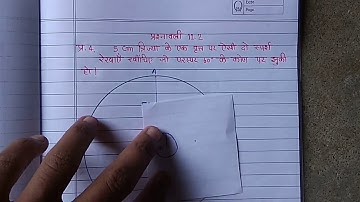 प्रश्नावली 11.2
प्र. 4. 5 cm त्रिज्या के एक वृत्त पर ऐसी दो स्पर्श
रेखाएँ खींचिए जो परस्पर 60° के कोण पर झुकी
हों।
A
Date
Page